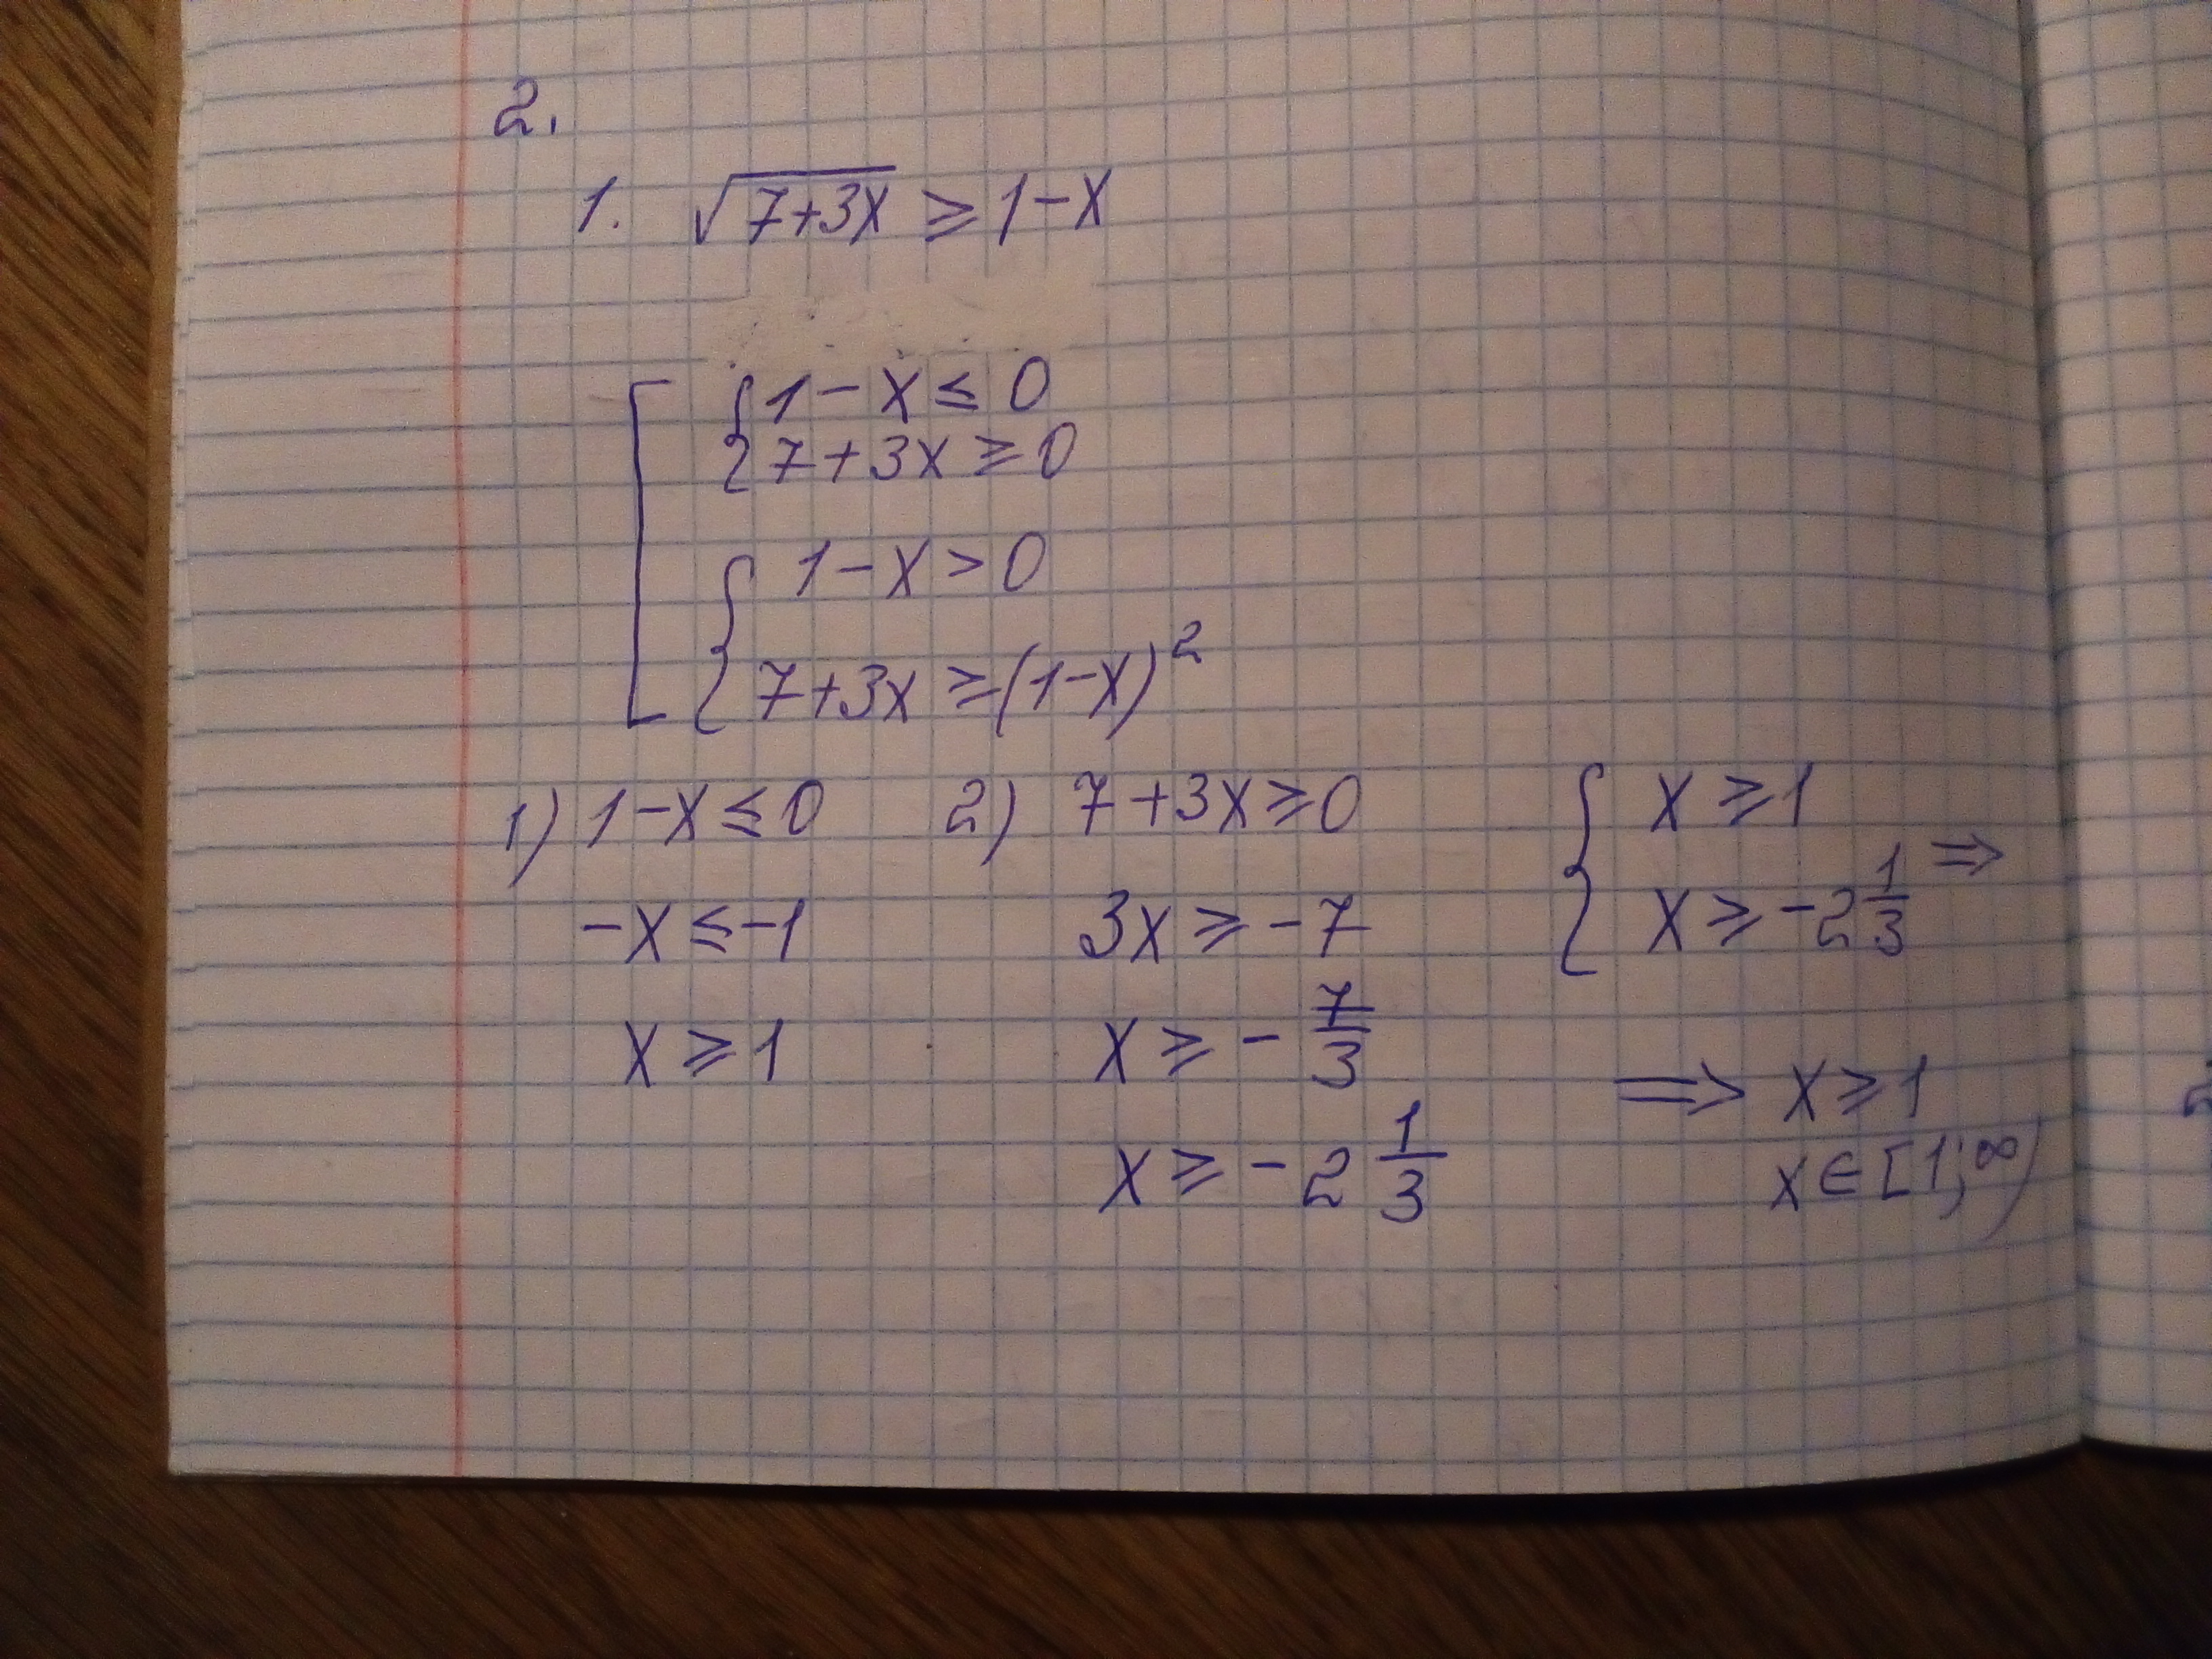 2.
1. √(7+3x) ≥ 1-x
1-x ≤ 0
7+3x ≥ 0
1-x > 0
7+3x ≥ (1-x)²
1) 1-x ≤ 0
-x ≤ -1
x ≥ 1
2) 7+3x ≥ 0
3x ≥ -7
x ≥ - 7/3
x ≥ -2 1/3
{ x ≥ 1
x ≥ -2 1/3 ⇒
⇒ x ≥ 1
x ∈ [1; ∞)